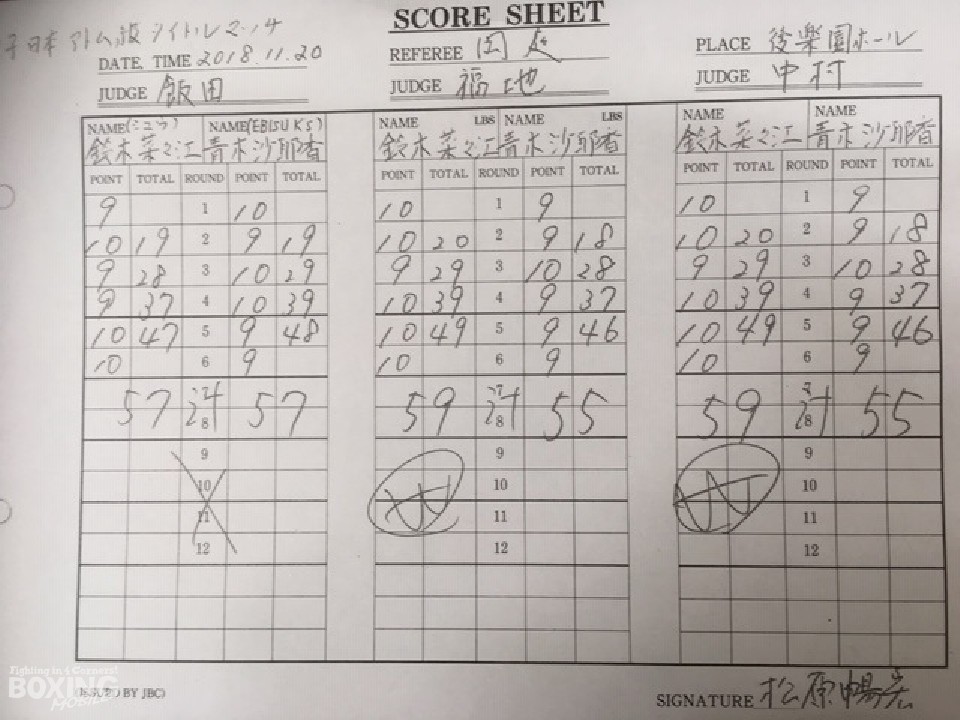 SCORE SHEET
子日本アトム級タイトルマッチ
DATE, TIME 2018.11.20
REFEREE
PLACE 後楽園ホール
JUDGE 飯田
JUDGE 福地
JUDGE 中村
NAME(ミユウ) NAME(EBISU K's) NAME LBS NAME LBS NAME NAME
鈴木菜々江 青木沙耶香 鈴木菜々江 青木沙耶香 鈴木菜々江 青木沙耶香
POINT TOTAL ROUND POINT TOTAL POINT TOTAL ROUND POINT TOTAL POINT TOTAL ROUND POINT TOTAL
9 1 10 10 1 9 10 1 9
10 19 2 9 19 10 20 2 9 18 10 20 2 9 18
9 28 3 10 29 9 29 3 10 28 9 29 3 10 28
9 37 4 10 39 10 39 4 9 37 10 39 4 9 37
10 47 5 9 48 10 49 5 9 46 10 49 5 9 46
10 6 9 10 6 9 10 6 9
57 計 57 59 7計 55 59 7計 55
8 8 8
9 9 9
10 10 10
11 11 11
12 12 12
Fighting in 4 Corners!
BOXING
MOBILE
(ISSUED BY JBC)
SIGNATURE 松原暢宏